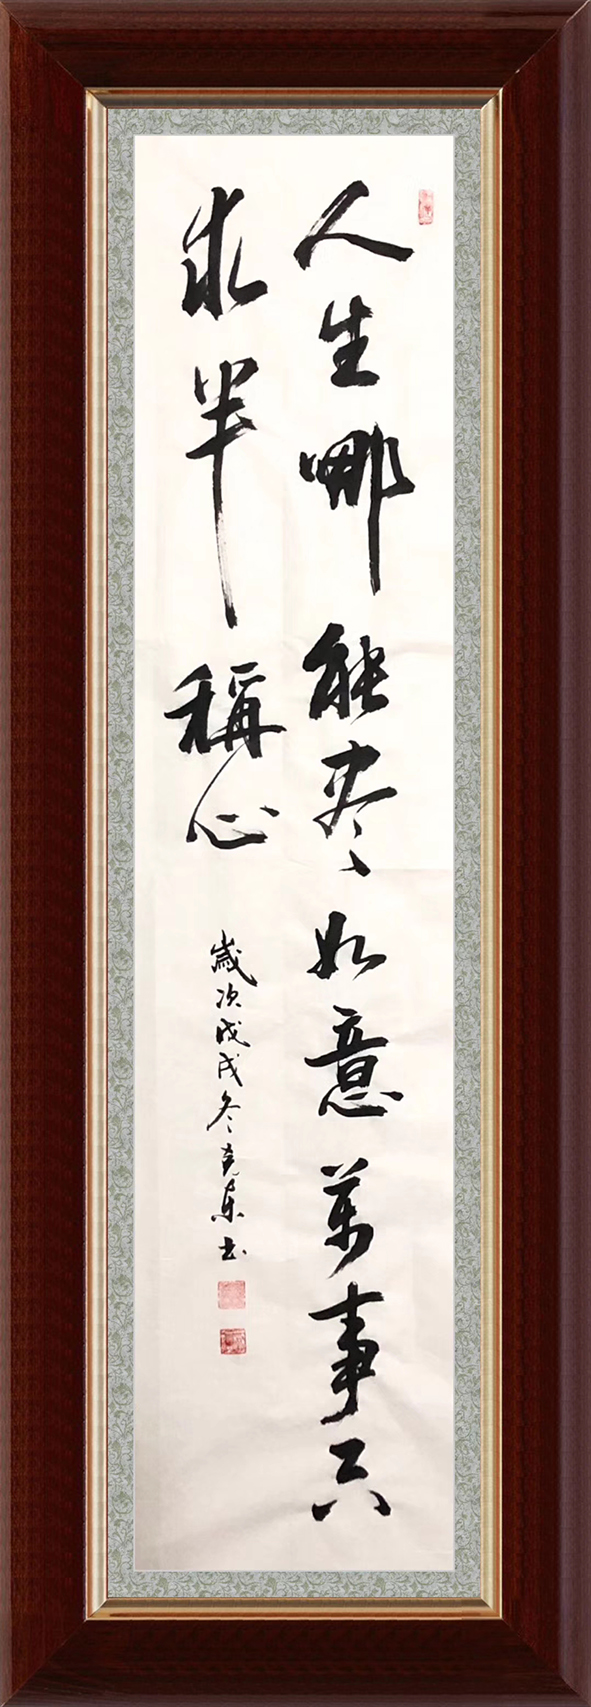 人生哪能尽如意萬事只
求半稱心
歲次戊戌冬克東书